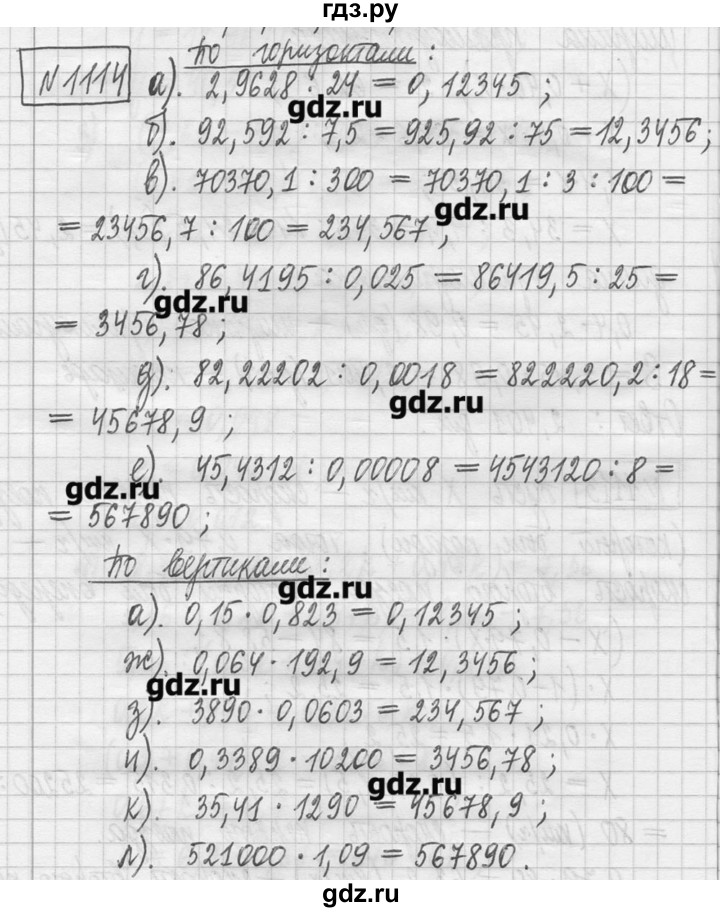 гдз.ру
По горизонтали:
№1114 а). 2,9628 : 24 = 0,12345 ;
gdz.ru
б). 92,592 : 7,5 = 925,92 : 75 = 12,3456;
в). 70370,1 : 300 = 70370,1 : 3 : 100 =
gdz.ru
= 23456,7 : 100 = 234,567 ;
г). 86,4195 : 0,025 = 86419,5 : 25 =
gdz.ru
= 3456,78 ;
д). 82,22202 : 0,0018 = 822220,2 : 18 =
gdz.ru
= 45678,9 ;
е). 45,4312 : 0,00008 = 4543120 : 8 =
gdz.ru
= 567890 ;
По вертикали:
gdz.ru
а). 0,15 · 0,823 = 0,12345 ;
ж). 0,064 · 192,9 = 12,3456 ;
gdz.ru
з). 3890 · 0,0603 = 234,567 ;
и). 0,3389 · 10200 = 3456,78 ;
gdz.ru
к). 35,41 · 1290 = 45678,9 ;
л). 521000 · 1,09 = 567890.
gdz.ru